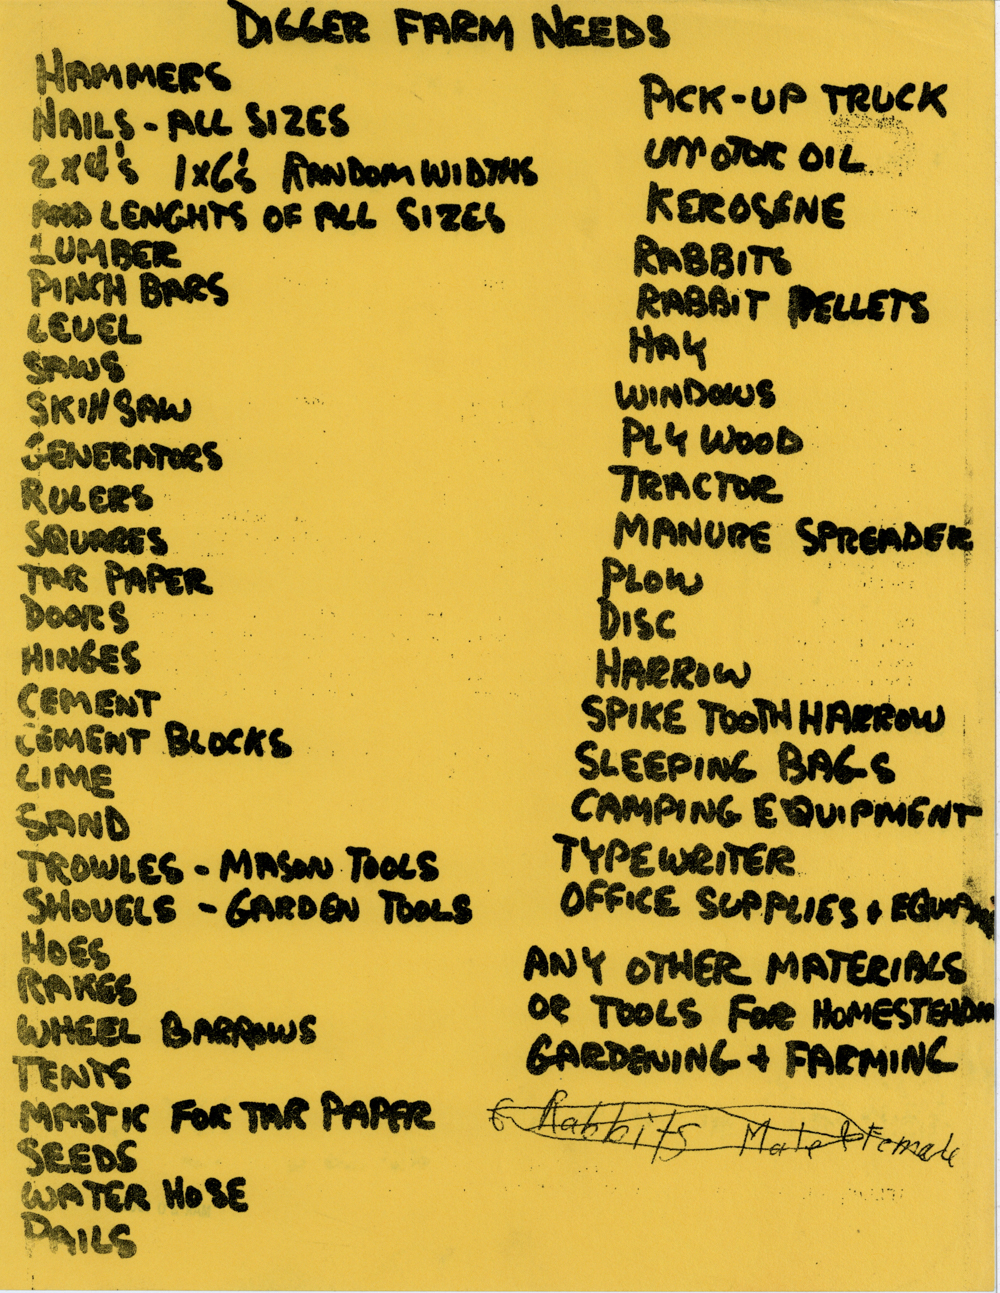 DIGGER FARM NEEDS
HAMMERS
NAILS - ALL SIZES
2x4's 1x6's RANDOM WIDTHS
AND LENGHTS OF ALL SIZES
LUMBER
PINCH BARS
LEVEL
SAWS
SKIll SAW
GENERATORS
RULERS
SQUARES
TAR PAPER
DOORS
HINGES
CEMENT
CEMENT BLOCKS
LIME
SAND
TROWLES - MASON TOOLS
SHOVELS - GARDEN TOOLS
HOES
RAKES
WHEEL BARROWS
TENTS
MASTIC FOR TAR PAPER
SEEDS
WATER HOSE
PAILS
PICK-UP TRUCK
MOTOR OIL
KEROSENE
RABBITS
RABBIT PELLETS
HAY
WINDOWS
PLY WOOD
TRACTOR
MANURE SPREADER
PLOW
DISC
HARROW
SPIKE TOOTH HARROW
SLEEPING BAGS
CAMPING EQUIPMENT
TYPEWRITER
OFFICE SUPPLIES +
ANY OTHER MATERIALS
OR TOOLS FOR
GARDENING + FARMING
Rabbits Male & Female